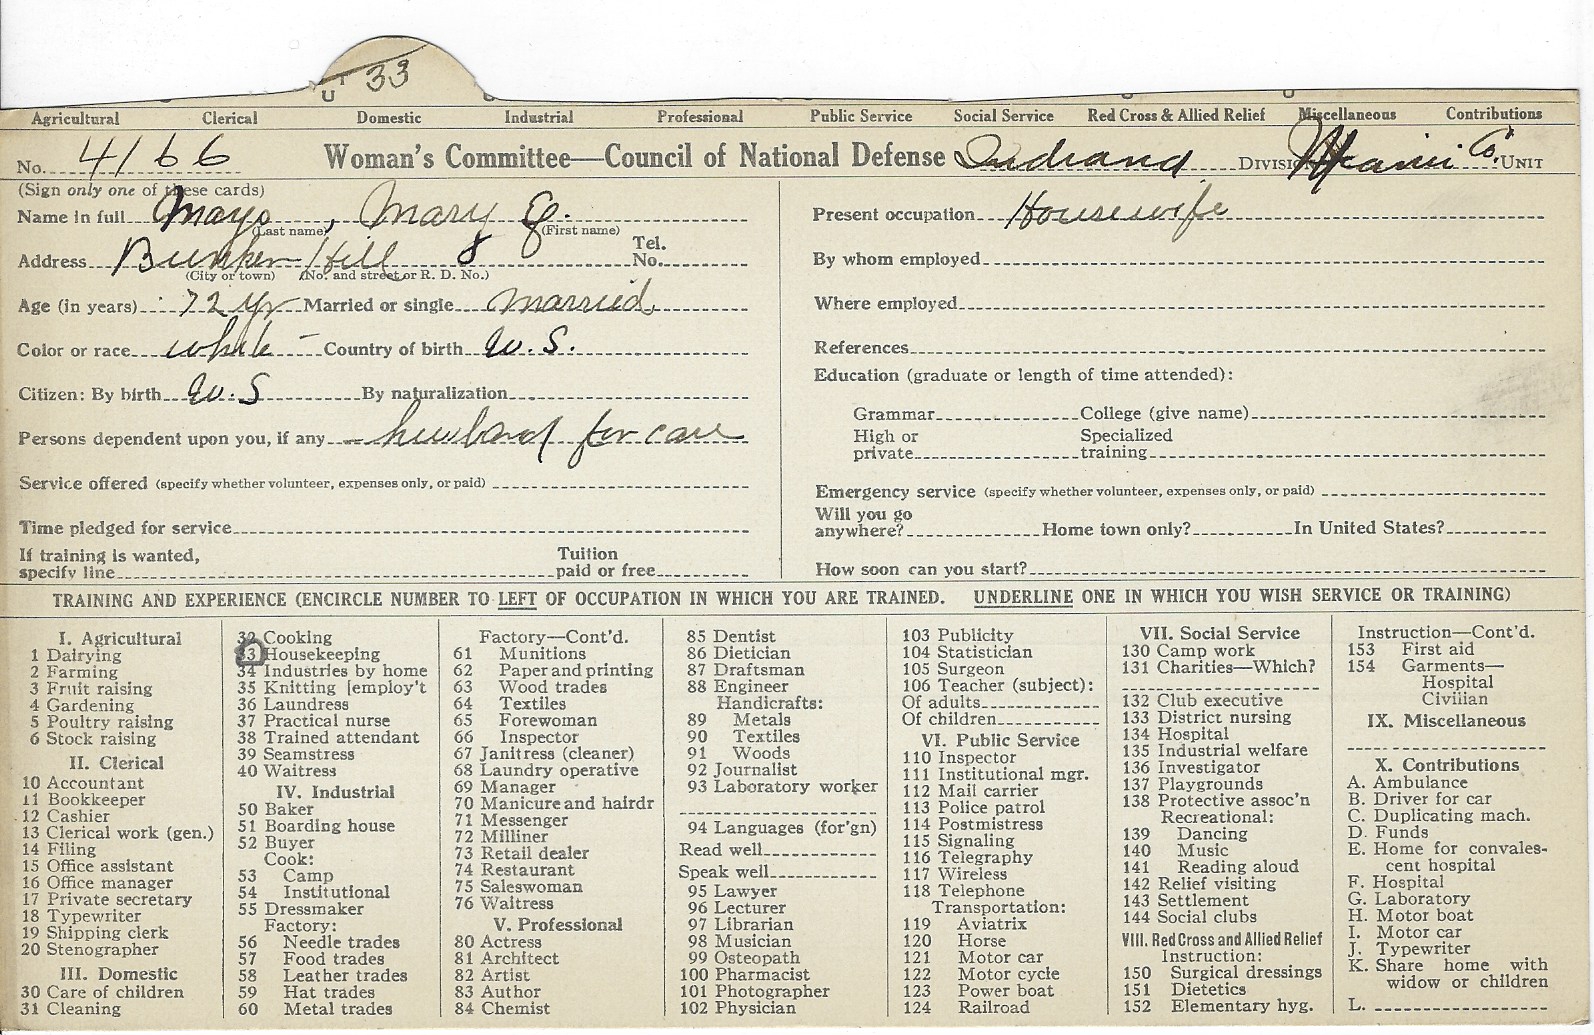 33
U
Agricultural Clerical Domestic Industrial Professional Public Service Social Service Red Cross & Allied Relief Miscellaneous Contributions
No. 4166 Woman's Committee—Council of National Defense Indiana DIVISION Miami Co. UNIT
(Sign only one of these cards)
Name in full Mayo, Mary E.
(Last name) (First name)
Address Bunker Hill 8 Tel. No.
(City or town) (No. and street or R. D. No.)
Age (in years) 72 yr Married or single married
Color or race white Country of birth U.S.
Citizen: By birth U.S By naturalization
Persons dependent upon you, if any husband for care
Service offered (specify whether volunteer, expenses only, or paid)
Time pledged for service
If training is wanted,
specify line Tuition paid or free
Present occupation Housewife
By whom employed
Where employed
References
Education (graduate or length of time attended):
Grammar College (give name)
High or private Specialized training
Emergency service (specify whether volunteer, expenses only, or paid)
Will you go
anywhere? Home town only? In United States?
How soon can you start?
TRAINING AND EXPERIENCE (ENCIRCLE NUMBER TO LEFT OF OCCUPATION IN WHICH YOU ARE TRAINED. UNDERLINE ONE IN WHICH YOU WISH SERVICE OR TRAINING)
I. Agricultural
1 Dairying
2 Farming
3 Fruit raising
4 Gardening
5 Poultry raising
6 Stock raising
II. Clerical
10 Accountant
11 Bookkeeper
12 Cashier
13 Clerical work (gen.)
14 Filing
15 Office assistant
16 Office manager
17 Private secretary
18 Typewriter
19 Shipping clerk
20 Stenographer
III. Domestic
30 Care of children
31 Cleaning
32 Cooking
33 Housekeeping
34 Industries by home
35 Knitting [employ't
36 Laundress
37 Practical nurse
38 Trained attendant
39 Seamstress
40 Waitress
IV. Industrial
50 Baker
51 Boarding house
52 Buyer
Cook:
53 Camp
54 Institutional
55 Dressmaker
Factory:
56 Needle trades
57 Food trades
58 Leather trades
59 Hat trades
60 Metal trades
Factory—Cont'd.
61 Munitions
62 Paper and printing
63 Wood trades
64 Textiles
65 Forewoman
66 Inspector
67 Janitress (cleaner)
68 Laundry operative
69 Manager
70 Manicure and hairdr
71 Messenger
72 Milliner
73 Retail dealer
74 Restaurant
75 Saleswoman
76 Waitress
V. Professional
80 Actress
81 Architect
82 Artist
83 Author
84 Chemist
85 Dentist
86 Dietician
87 Draftsman
88 Engineer
Handicrafts:
89 Metals
90 Textiles
91 Woods
92 Journalist
93 Laboratory worker
94 Languages (for'gn)
Read well
Speak well
95 Lawyer
96 Lecturer
97 Librarian
98 Musician
99 Osteopath
100 Pharmacist
101 Photographer
102 Physician
103 Publicity
104 Statistician
105 Surgeon
106 Teacher (subject):
Of adults
Of children
VI. Public Service
110 Inspector
111 Institutional mgr.
112 Mail carrier
113 Police patrol
114 Postmistress
115 Signaling
116 Telegraphy
117 Wireless
118 Telephone
Transportation:
119 Aviatrix
120 Horse
121 Motor car
122 Motor cycle
123 Power boat
124 Railroad
VII. Social Service
130 Camp work
131 Charities—Which?
132 Club executive
133 District nursing
134 Hospital
135 Industrial welfare
136 Investigator
137 Playgrounds
138 Protective assoc'n
Recreational:
139 Dancing
140 Music
141 Reading aloud
142 Relief visiting
143 Settlement
144 Social clubs
VIII. Red Cross and Allied Relief
Instruction:
150 Surgical dressings
151 Dietetics
152 Elementary hyg.
Instruction—Cont'd.
153 First aid
154 Garments—
Hospital
Civilian
IX. Miscellaneous
X. Contributions
A. Ambulance
B. Driver for car
C. Duplicating mach.
D. Funds
E. Home for convales-
cent hospital
F. Hospital
G. Laboratory
H. Motor boat
I. Motor car
J. Typewriter
K. Share home with
widow or children
L.